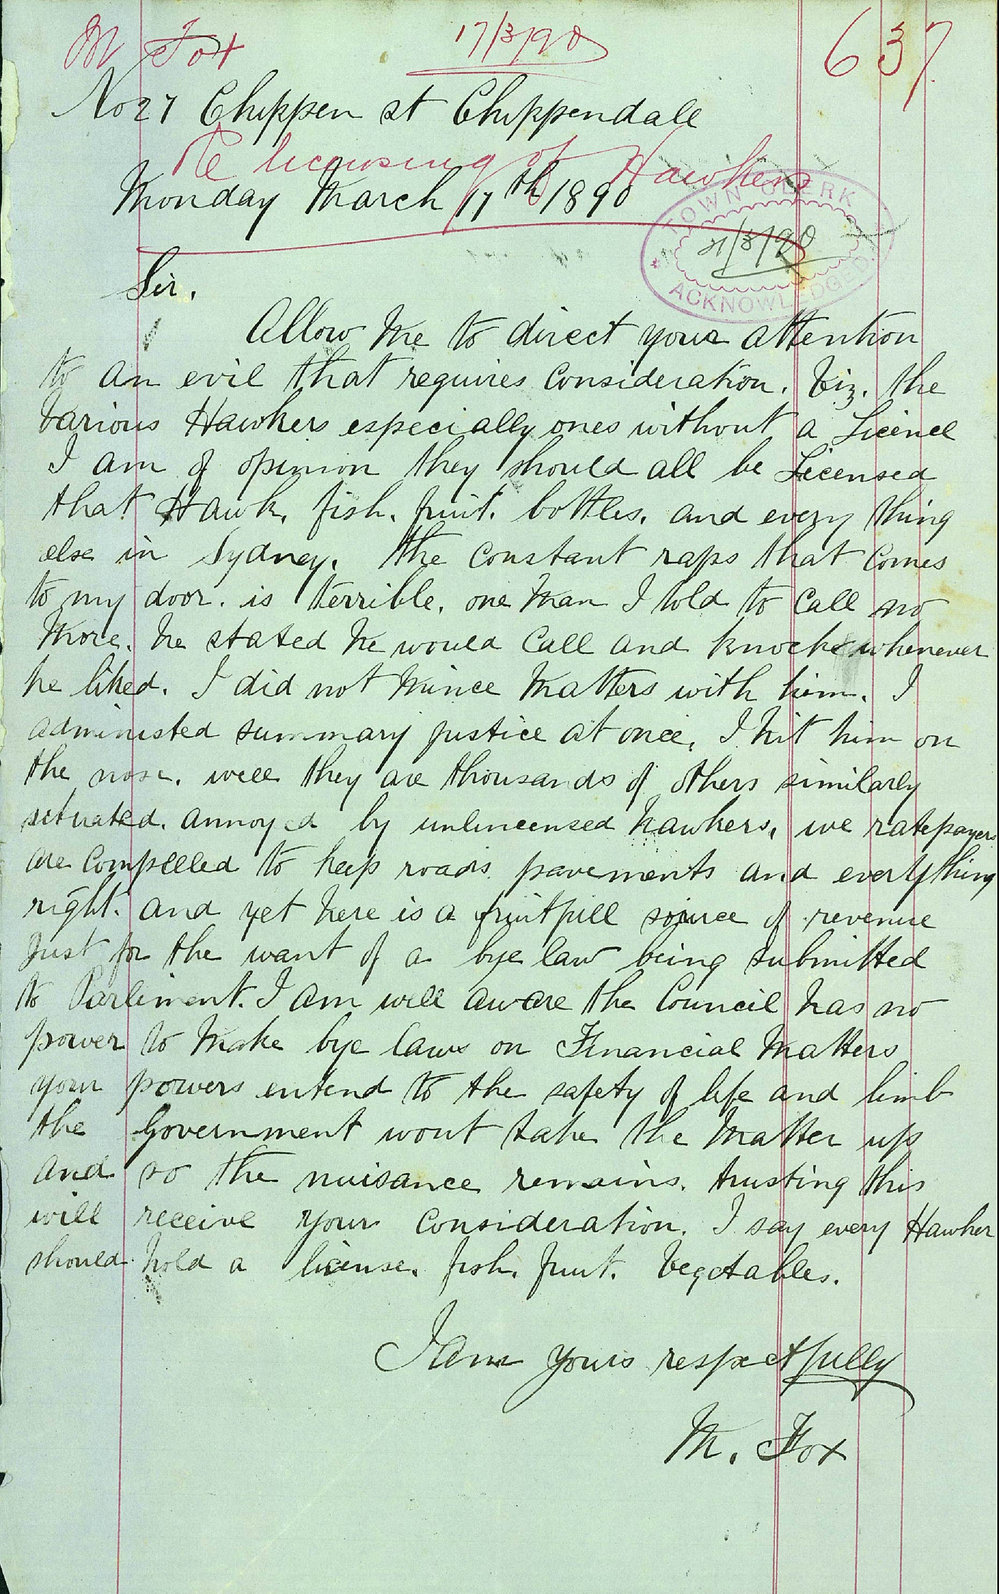 M Fox 17/3/90 637
No 27 Chippen st Chippendale
Re licensing of Hawkers
Monday March 17th 1890
TOWN CLERK
21/3/90
ACKNOWLEDGED
Sir,
Allow me to direct your attention
to an evil that requires consideration. Viz. the
Various Hawkers especially ones without a Licence
I am of opinion they should all be Licensed
that Hawk, fish. fruit. bottles. and every thing
else in Sydney. the constant raps that comes
to my door. is terrible. one man I told to call no
more. he stated he would call and knock whenever
he liked. I did not mince matters with him. I
administed summary justice at once, I hit him on
the nose. well they are thousands of others similarly
situated. annoyed by unlincensed hawkers, we ratepayers
are compelled to keep roads pavements and everything
right. and yet here is a fruitfull source of revenue
Just for the want of a bye law being submitted
to Parliment. I am well aware the Council has no
power to make bye laws on Financial matters
your powers entend to the safety of life and limb
the Government wont take the matter up
and so the nuisance remains. trusting this
will receive your consideration. I say every Hawker
should hold a license. fish. fruit. Vegetables.
I am yours respectfully
M. Fox